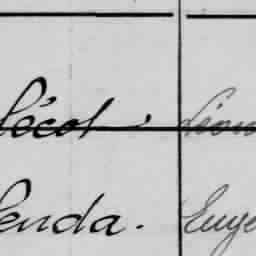 lécot. Léon
enda. Euge